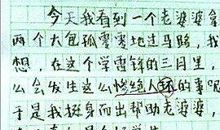 今天我看到一个老婆婆拿
两个大包孤零零地过马路，我
想，在这个学雷锋的三月里，
么会发生这么惨绝人寰的事呢
于是我挺身而出帮助老婆婆